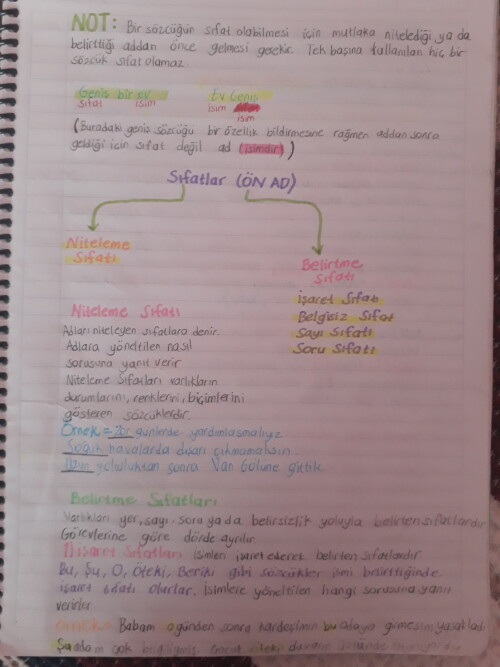 NOT: Bir sözcüğün sıfat olabilmesi için mutlaka nitelediği ya da
belirttiği addan önce gelmesi gerekir. Tek başına kullanılan hiç bir
sözcük sıfat olamaz.
Geniş bir ev Ev Geniş
sıfat isim isim isim
(Buradaki geniş sözcüğü bir özellik bildirmesine rağmen addan sonra
geldiği için sıfat değil ad (isimdir))
Sıfatlar (ÖN AD)
Niteleme
Sıfatı
Belirtme
Sıfatı
İşaret Sıfatı
Belgisiz Sıfat
Sayı Sıfatı
Soru Sıfatı
Niteleme Sıfatı
Adları niteleyen sıfatlara denir.
Adlara yöneltilen nasıl
sorusuna yanıt verir
Niteleme Sıfatları varlıkların
durumlarını, renklerini, biçimlerini
gösteren sözcüklerdir.
Örnek = Zor günlerde yardımlaşmalıyız
Soğuk havalarda dışarı çıkmamalısın.
Uzun yolculuktan sonra Van Gölüne gittik
Belirtme Sıfatları
Varlıkları yer, sayı, soru ya da belirsizlik yoluyla belirten sıfatlardır
Görevlerine göre dörde ayrılır.
1) İşaret Sıfatları isimleri işaret ederek belirten sıfatlardır
Bu, Şu, O, Öteki, Beriki gibi sözcükler ismi belirttiğinde
işaret sıfatı olurlar. İsimlere yöneltilen hangi sorusuna yanıt
verirler
Örnek = Babam o günden sonra kardeşimin bu odaya girmesini yasakladı
Şu adam çok